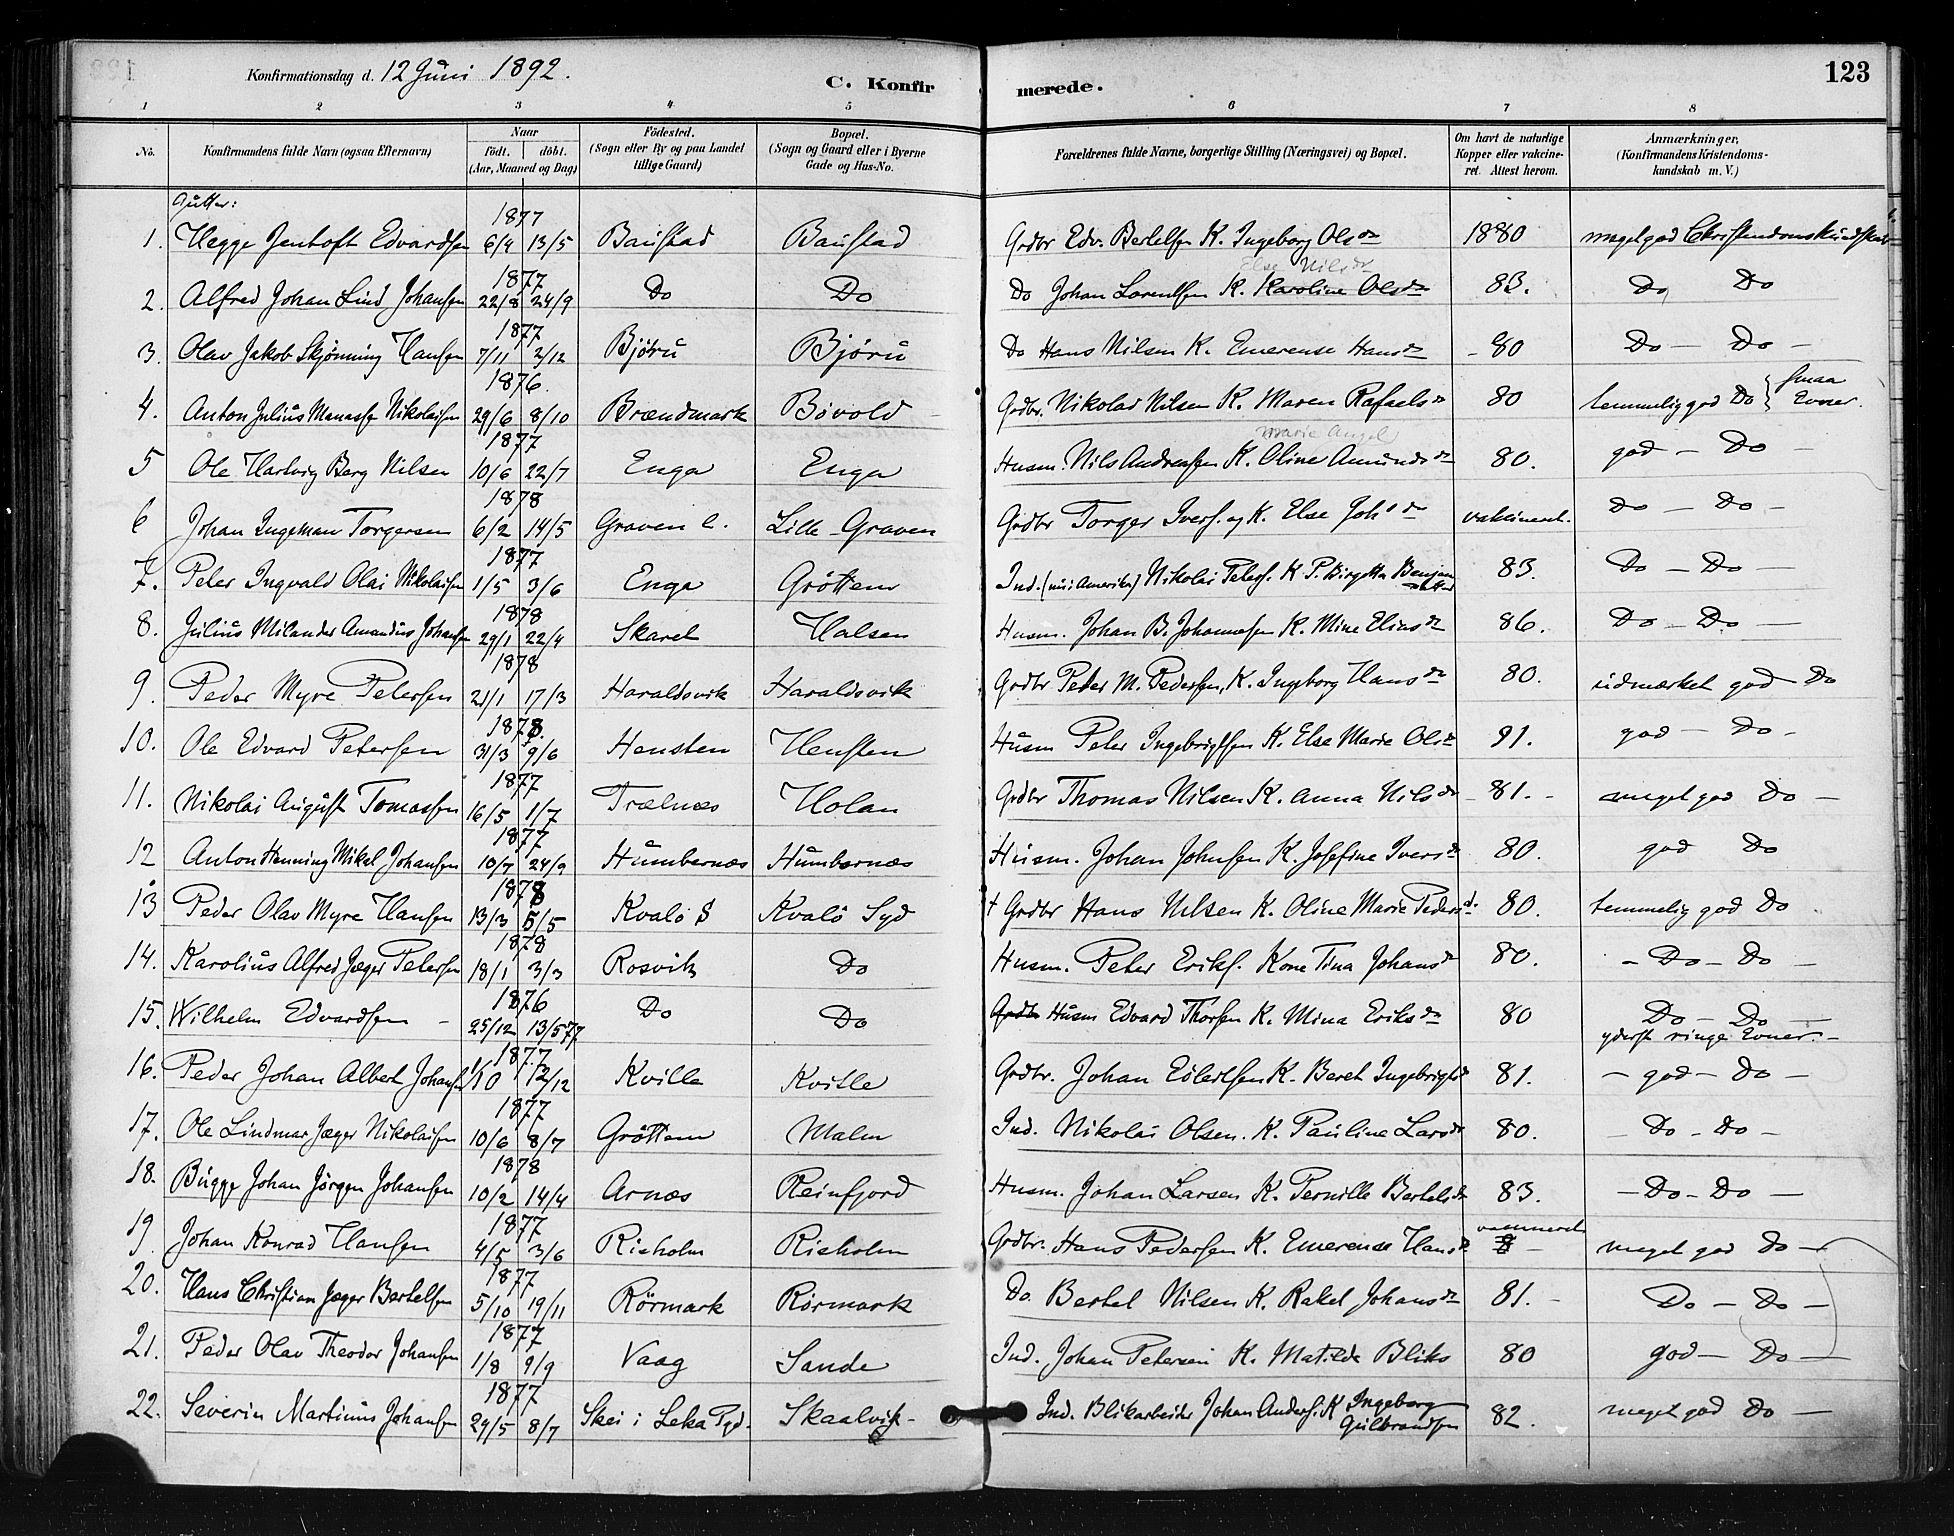 Konfirmationsdag d. 12 Juni 1892.
C. Konfirmerede.
123
1 2 3 4 5 6 7 8
No. Konfirmandens fulde Navn (ogsaa Efternavn) Naar født. døbt. (Aar, Maaned og Dag) Fødested. (Sogn eller By og paa Landet tillige Gaard) Bopæl. (Sogn og Gaard eller i Byerne Gade og Hus-No. Forældrenes fulde Navne, borgerlige Stilling (Næringsvei) og Bopæl. Om havt de naturlige Kopper eller vakcineret. Attest herom. Anmærkninger, (Konfirmandens Kristendomskundskab m. V.)
Gutter:
1877
1. Hegge Jentoft Edvardsen 6/4 13/5 Baustad Baustad Grdbr Edv. Bertelsen K. Ingeborg Olsdr 1880 meget god Christendomskundskab
1877 Else Nilsdr
2. Alfred Johan Lind Johansen 22/8 24/9 Do Do Do Johan Lorentsen K. Karoline Olsdr 83. Do Do
1877
3. Olav Jakob Skjønning Hansen 7/11 2/12 Bjøru Bjøru Do Hans Nilsen K. Emerense Hansdr - 80 Do - Do -
1876.
4. Anton Julius Manasse Nikolaisen 29/6 8/10 Brændmark Bøvold Grdbr. Nikolai Nilsen K. Maren Rafaelsdr 80 temmelig god Do { smaa Evner.
1877 Marie Angel
5 Ole Hartvig Berg Nilsen 10/6 22/7 Enga Enga Husm. Nils Andreassen K. Oline Amundsdr 80. god - Do -
1878
6 Johan Ingeman Torgersen 6/2 14/5 Graven l. Lille-Graven Grdbr Torger Ivers. og K. Else Johsdr vakcineret. Do - Do -
1877
7. Peter Ingvald Olai Nikolaisen 1/5 3/6 Enga Grøttem Ind. (nu i Amerika) Nikolai Peters. K P. Birgitta Benjaminsdatter 83. Do - Do -
1878
8. Julius Milander Amandus Johansen 29/1 22/4 Skaret Halsen Husm. Johan B. Johannesen K. Mine Eliasdr 86. Do - Do -
1878
9. Peder Myre Petersen 21/1 17/3 Haraldsvik Haraldsvik Grdbr Peter M. Pedersen, K. Ingeborg Hansdr 80. udmærket god Do
1878.
10. Ole Edvard Petersen 31/3 9/6 Hensten Hensten Husm Peter Ingebrigtsen K. Else Marie Olsdr 91. god - Do -
1877
11. Nikolai August Tomassen 16/5 1/7 Trælnæs Holan Grdbr Thomas Nilsen K. Anna Nilsdr - 81. - meget god Do -
1877
12 Anton Henning Mikal Johansen 10/7 24/9 Humbernæs Humbernæs Husm. Johan Johnsen K. Josefine Iversdr 80. god Do
1878
13 Peder Olav Myre Hansen 13/3 5/5 Kvalø S Kvalø Syd † Grdbr Hans Nilsen K. Oline Marie Pedersd. 80. temmelig god Do
1878
14. Karolius Alfred Jæger Petersen 18/1 3/3 Rosvik Do Husm. Peter Eriks. Kone Tina Johansdr 80. - Do - Do -
1876
15. Wilhelm Edvardsen - 25/12 13/5 77 Do Do Grdbr Husm Edvard Thorsen K. Mina Eriksdr 80 Do - Do - yderst ringe Evner. -
1877
16. Peder Johan Albert Johansen 1/10 12/12 Kville Kvitle Grdbr. Johan Edertsen K. Beret Ingebrigtsd 81. - god - Do -
1877
17. Ole Lindmar Jæger Nikolaisen 10/6 8/7 Grøttem Malm Ind. Nikolai Olsen. K. Pauline Larsdr 80. - Do - Do -
1878
18. Bugge Johan Jörgen Johansen 10/2 14/4 Arnæs Reinfjord Husm. Johan Larsen K. Pernille Bertelsdr 83. - Do - Do -
1877
19. Johan Konrad Hansen 4/5 3/6 Risholm Risholm Grdbr. Hans Pedersen K. Emerense Hansdr meget god Do -
1877
20. Hans Christian Jæger Bertelsen 5/10 19/11 Rörmark Rörmark Do. Bertel Nilsen K. Rakel Johansdr 81. - Do - Do -
1877
21. Peder Olav Theodor Johansen 1/8 9/9 Vaag Sande Ind. Johan Petersen K. Matilde Bliks 80 god - Do -
1877
22. Severin Martinus Johansen 29/5 8/7 Skei i Leka Pgd. Skaalvik - Ind. Blikarbeider Johan Anders. K Ingeborg Gulbrandsen 82. meget god Do -